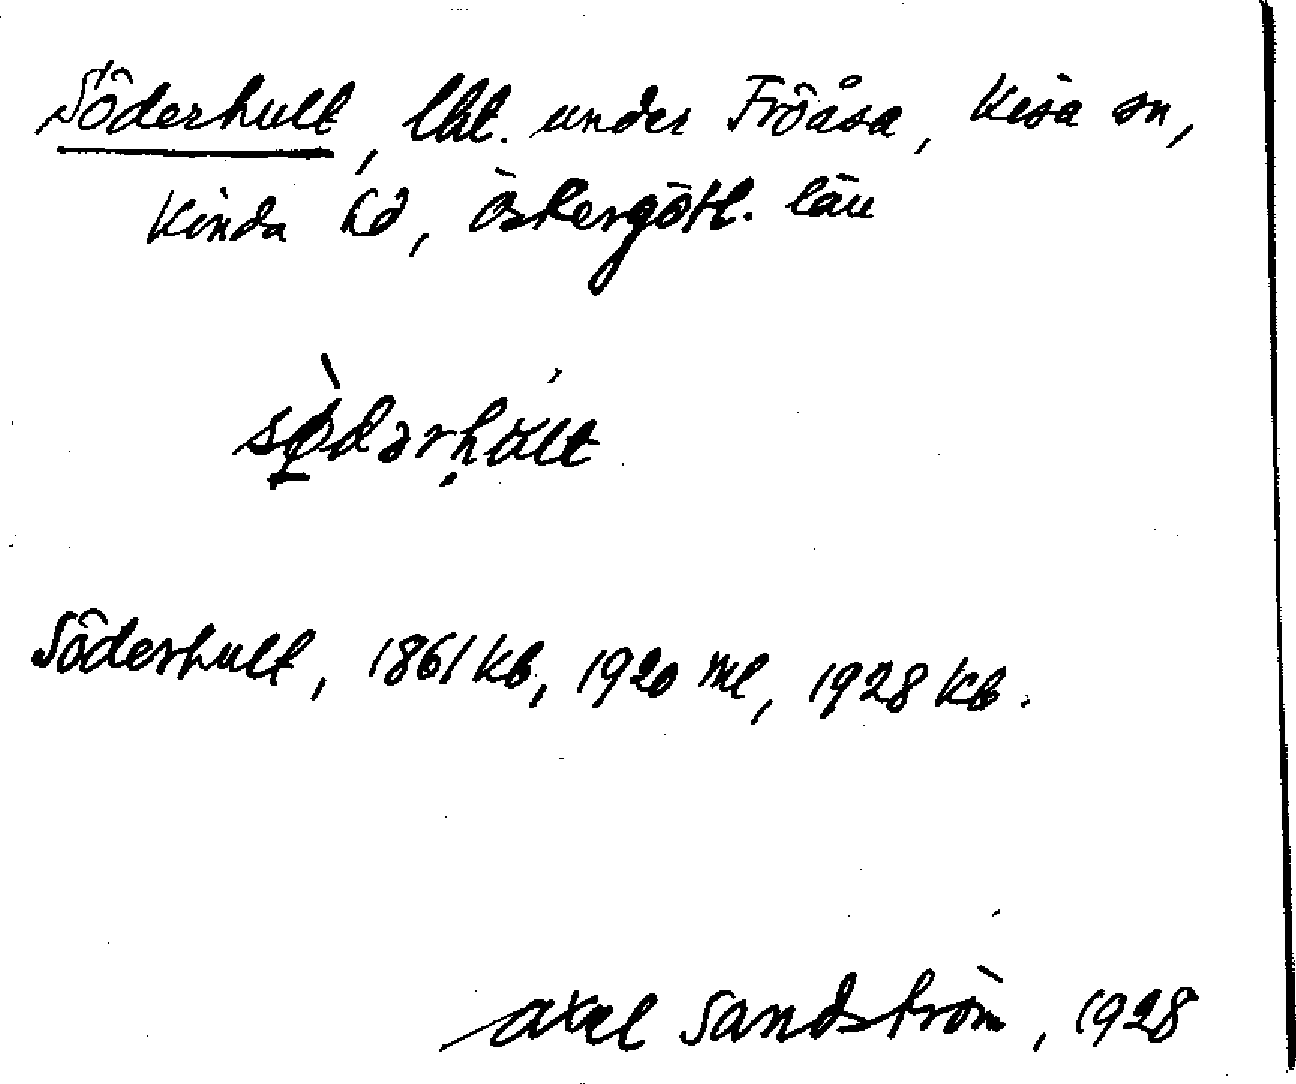 Söderhult, lht. under Fröåsa, Kisa sn,
Kinda hd, Östergötl. län
Söderhult, 1861 kb, 1920 ml, 1928 kb.
Axel Sandström, 1928